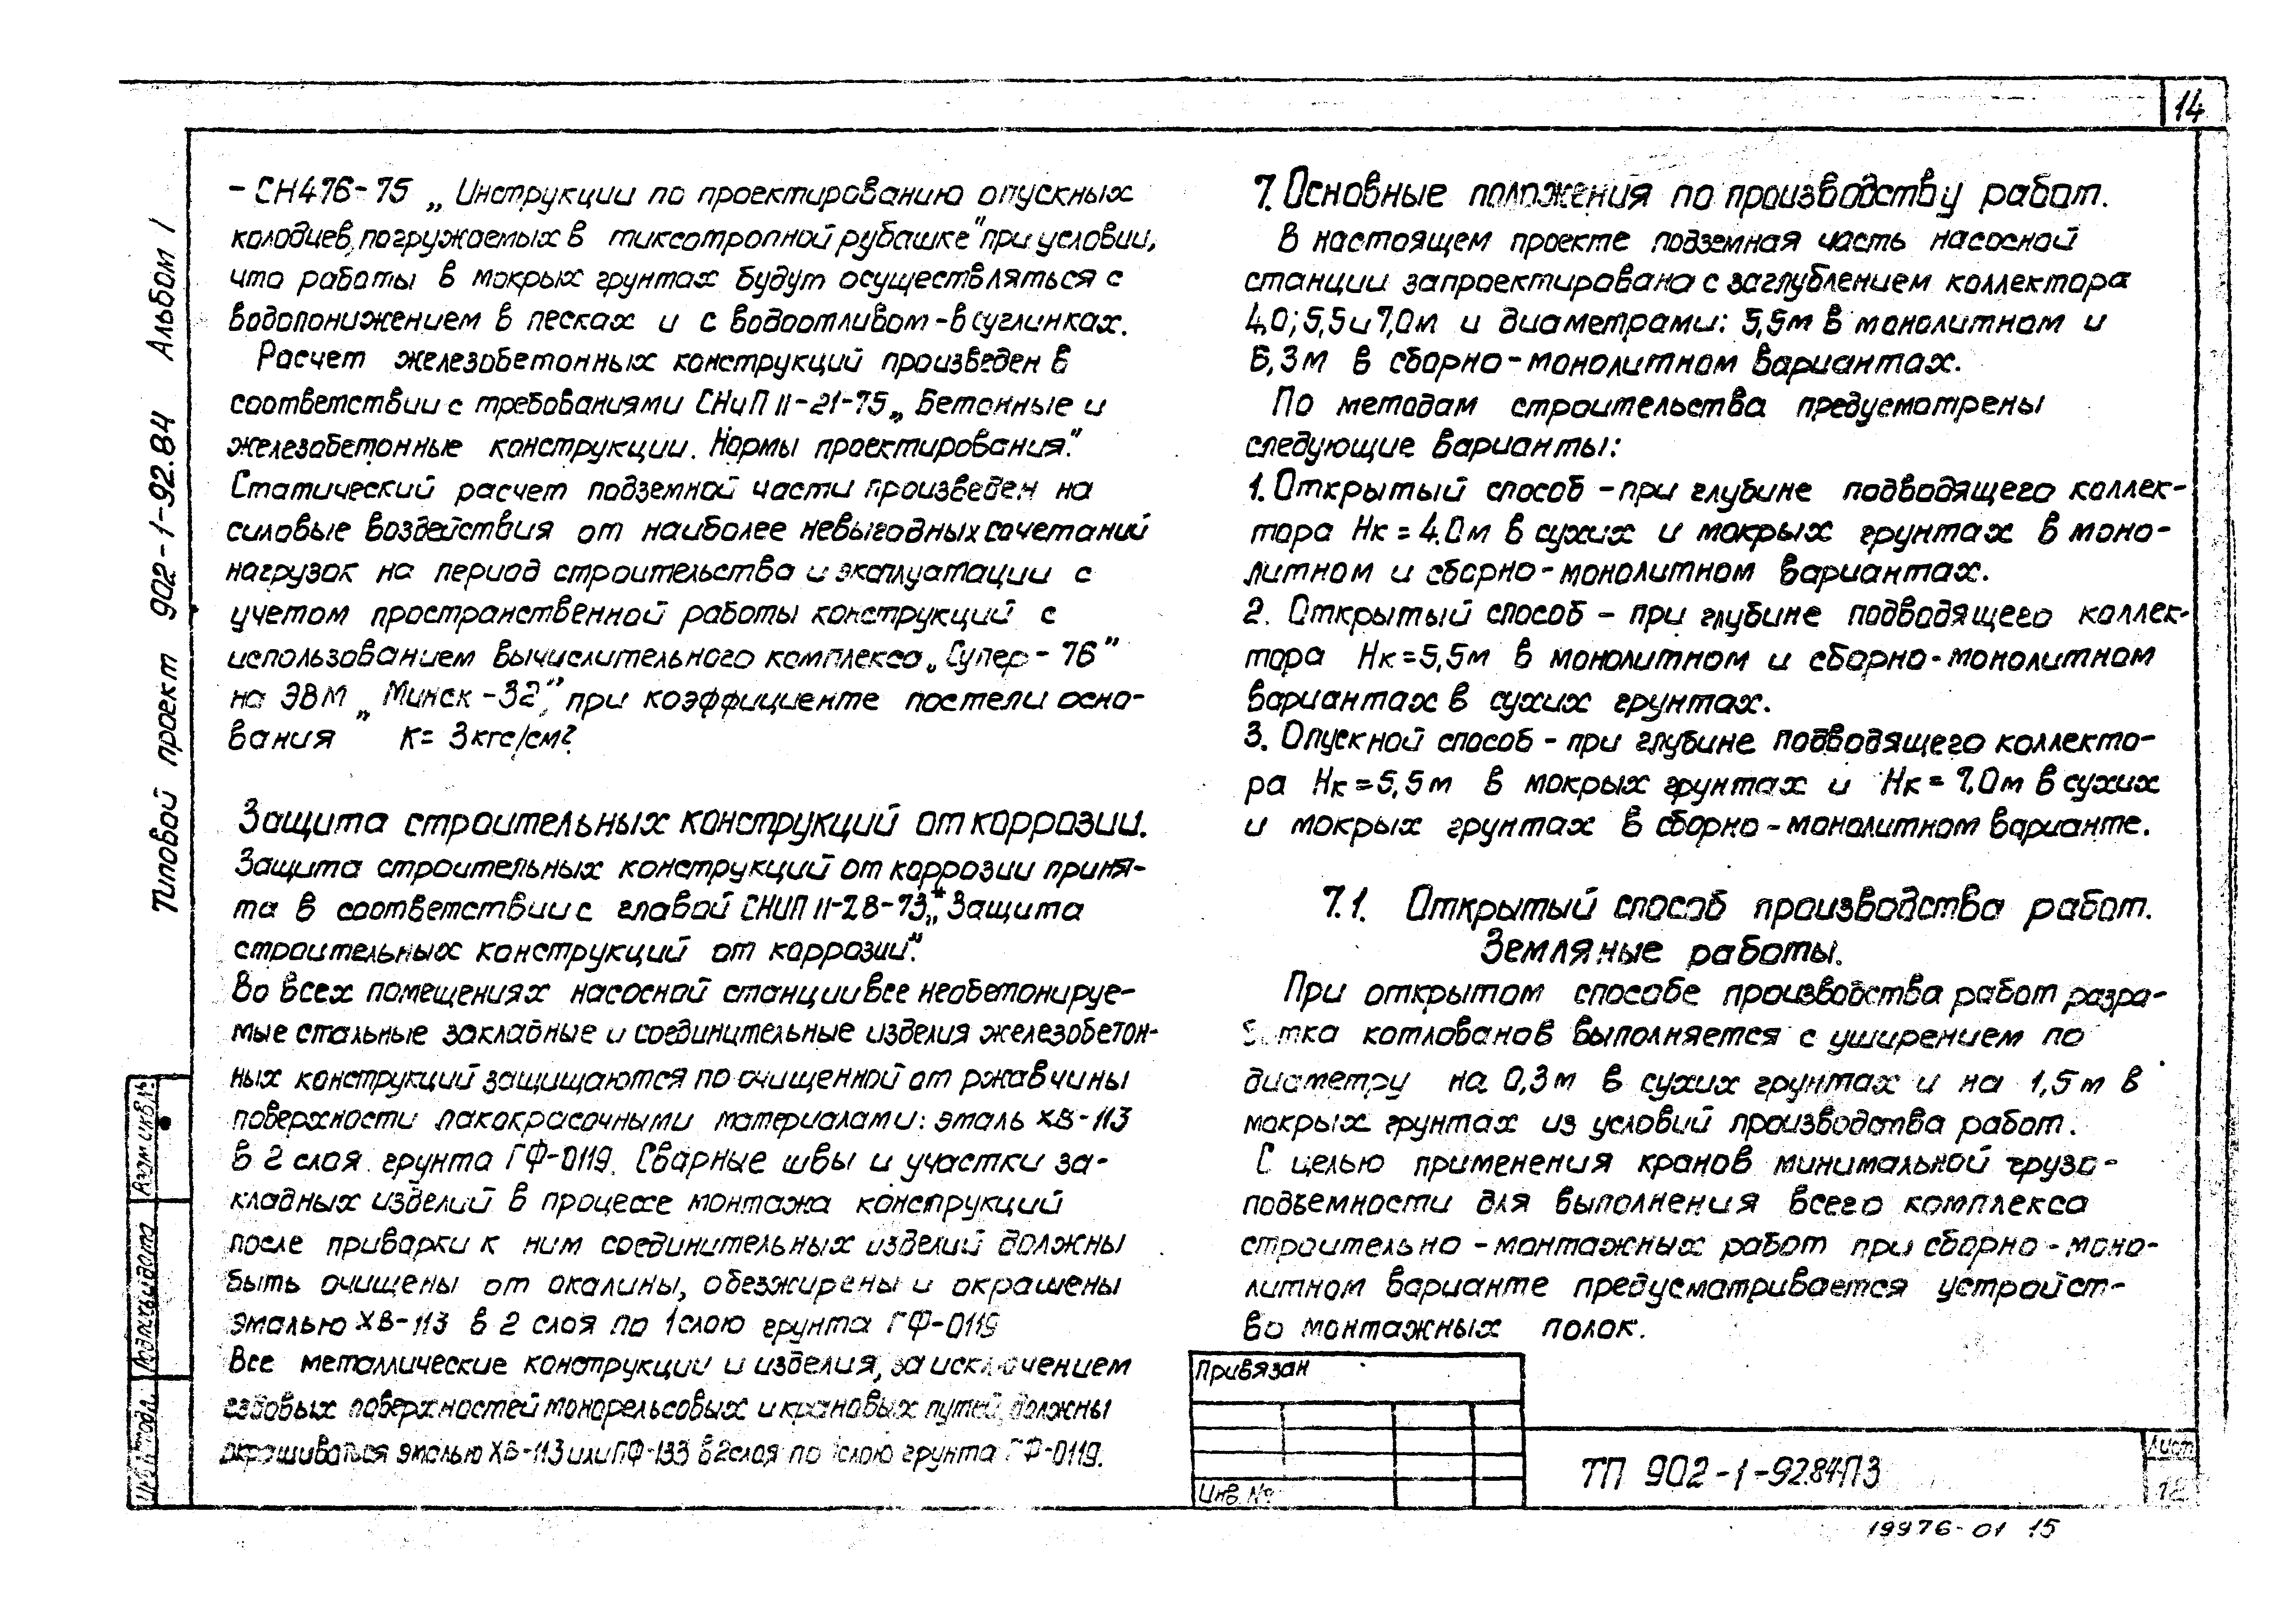 14
Типовой проект 902-1-92.84 Альбом I
- СН476-75 „Инструкции по проектированию опускных
колодцев, погружаемых в тиксотропной рубашке" при условии,
что работы в мокрых грунтах будут осуществляться с
водопонижением в песках и с водоотливом - в суглинках.
Расчет железобетонных конструкций произведен в
соответствии с требованиями СНиП II-21-75 „Бетонные и
железобетонные конструкции. Нормы проектирования".
Статический расчет подземной части произведен на
силовые воздействия от наиболее невыгодных сочетаний
нагрузок на период строительства и эксплуатации с
учетом пространственной работы конструкций с
использованием вычислительного комплекса „Супер-76"
на ЭВМ „Минск-32", при коэффициенте постели осно-
вания К= 3кгс/см².
Защита строительных конструкций от коррозии.
Защита строительных конструкций от коррозии приня-
та в соответствии с главой СНИП II-28-73* „Защита
строительных конструкций от коррозии".
Во всех помещениях насосной станции все необетонируе-
мые стальные закладные и соединительные изделия железобетон-
ных конструкций защищаются по очищенной от ржавчины
поверхности лакокрасочными материалами: эмаль ХВ-113
в 2 слоя грунта ГФ-0119. Сварные швы и участки за-
кладных изделий в процессе монтажа конструкций
после приварки к ним соединительных изделий должны
быть очищены от окалины, обезжирены и окрашены
эмалью ХВ-113 в 2 слоя по 1слою грунта ГФ-0119
Все металлические конструкции и изделия, за исключением
ездовых поверхностей монорельсовых и крановых путей, должны
окрашиваться эмалью ХВ-113 или ПФ-133 в 2слоя по 1слою грунта ГФ-0119.
7. Основные положения по производству работ.
В настоящем проекте подземная часть насосной
станции запроектирована с заглублением коллектора
4,0; 5,5 и 7,0м и диаметрами: 5,5м в монолитном и
6,3м в сборно-монолитном вариантах.
По методам строительства предусмотрены
следующие варианты:
1. Открытый способ - при глубине подводящего коллек-
тора Нк = 4.0м в сухих и мокрых грунтах в моно-
литном и сборно-монолитном вариантах.
2. Открытый способ - при глубине подводящего коллек-
тора Нк=5,5м в монолитном и сборно-монолитном
вариантах в сухих грунтах.
3. Опускной способ - при глубине подводящего коллекто-
ра Нк=5,5м в мокрых грунтах и Нк= 7.0м в сухих
и мокрых грунтах в сборно-монолитном варианте.
7.1. Открытый способ производства работ.
Земляные работы.
При открытом способе производства работ разра-
ботка котлованов выполняется с уширением по
диаметру на 0,3м в сухих грунтах и на 1,5м в
мокрых грунтах из условий производства работ.
С целью применения кранов минимальной грузо-
подъемности для выполнения всего комплекса
строительно-монтажных работ при сборно-моно-
литном варианте предусматривается устройст-
во монтажных полок.
Взам инв.№
Подпись и дата
Инв № подл.
Привязан
Инв. №
ТП 902-1-92.84-ПЗ
Лист
12
19976-01 15